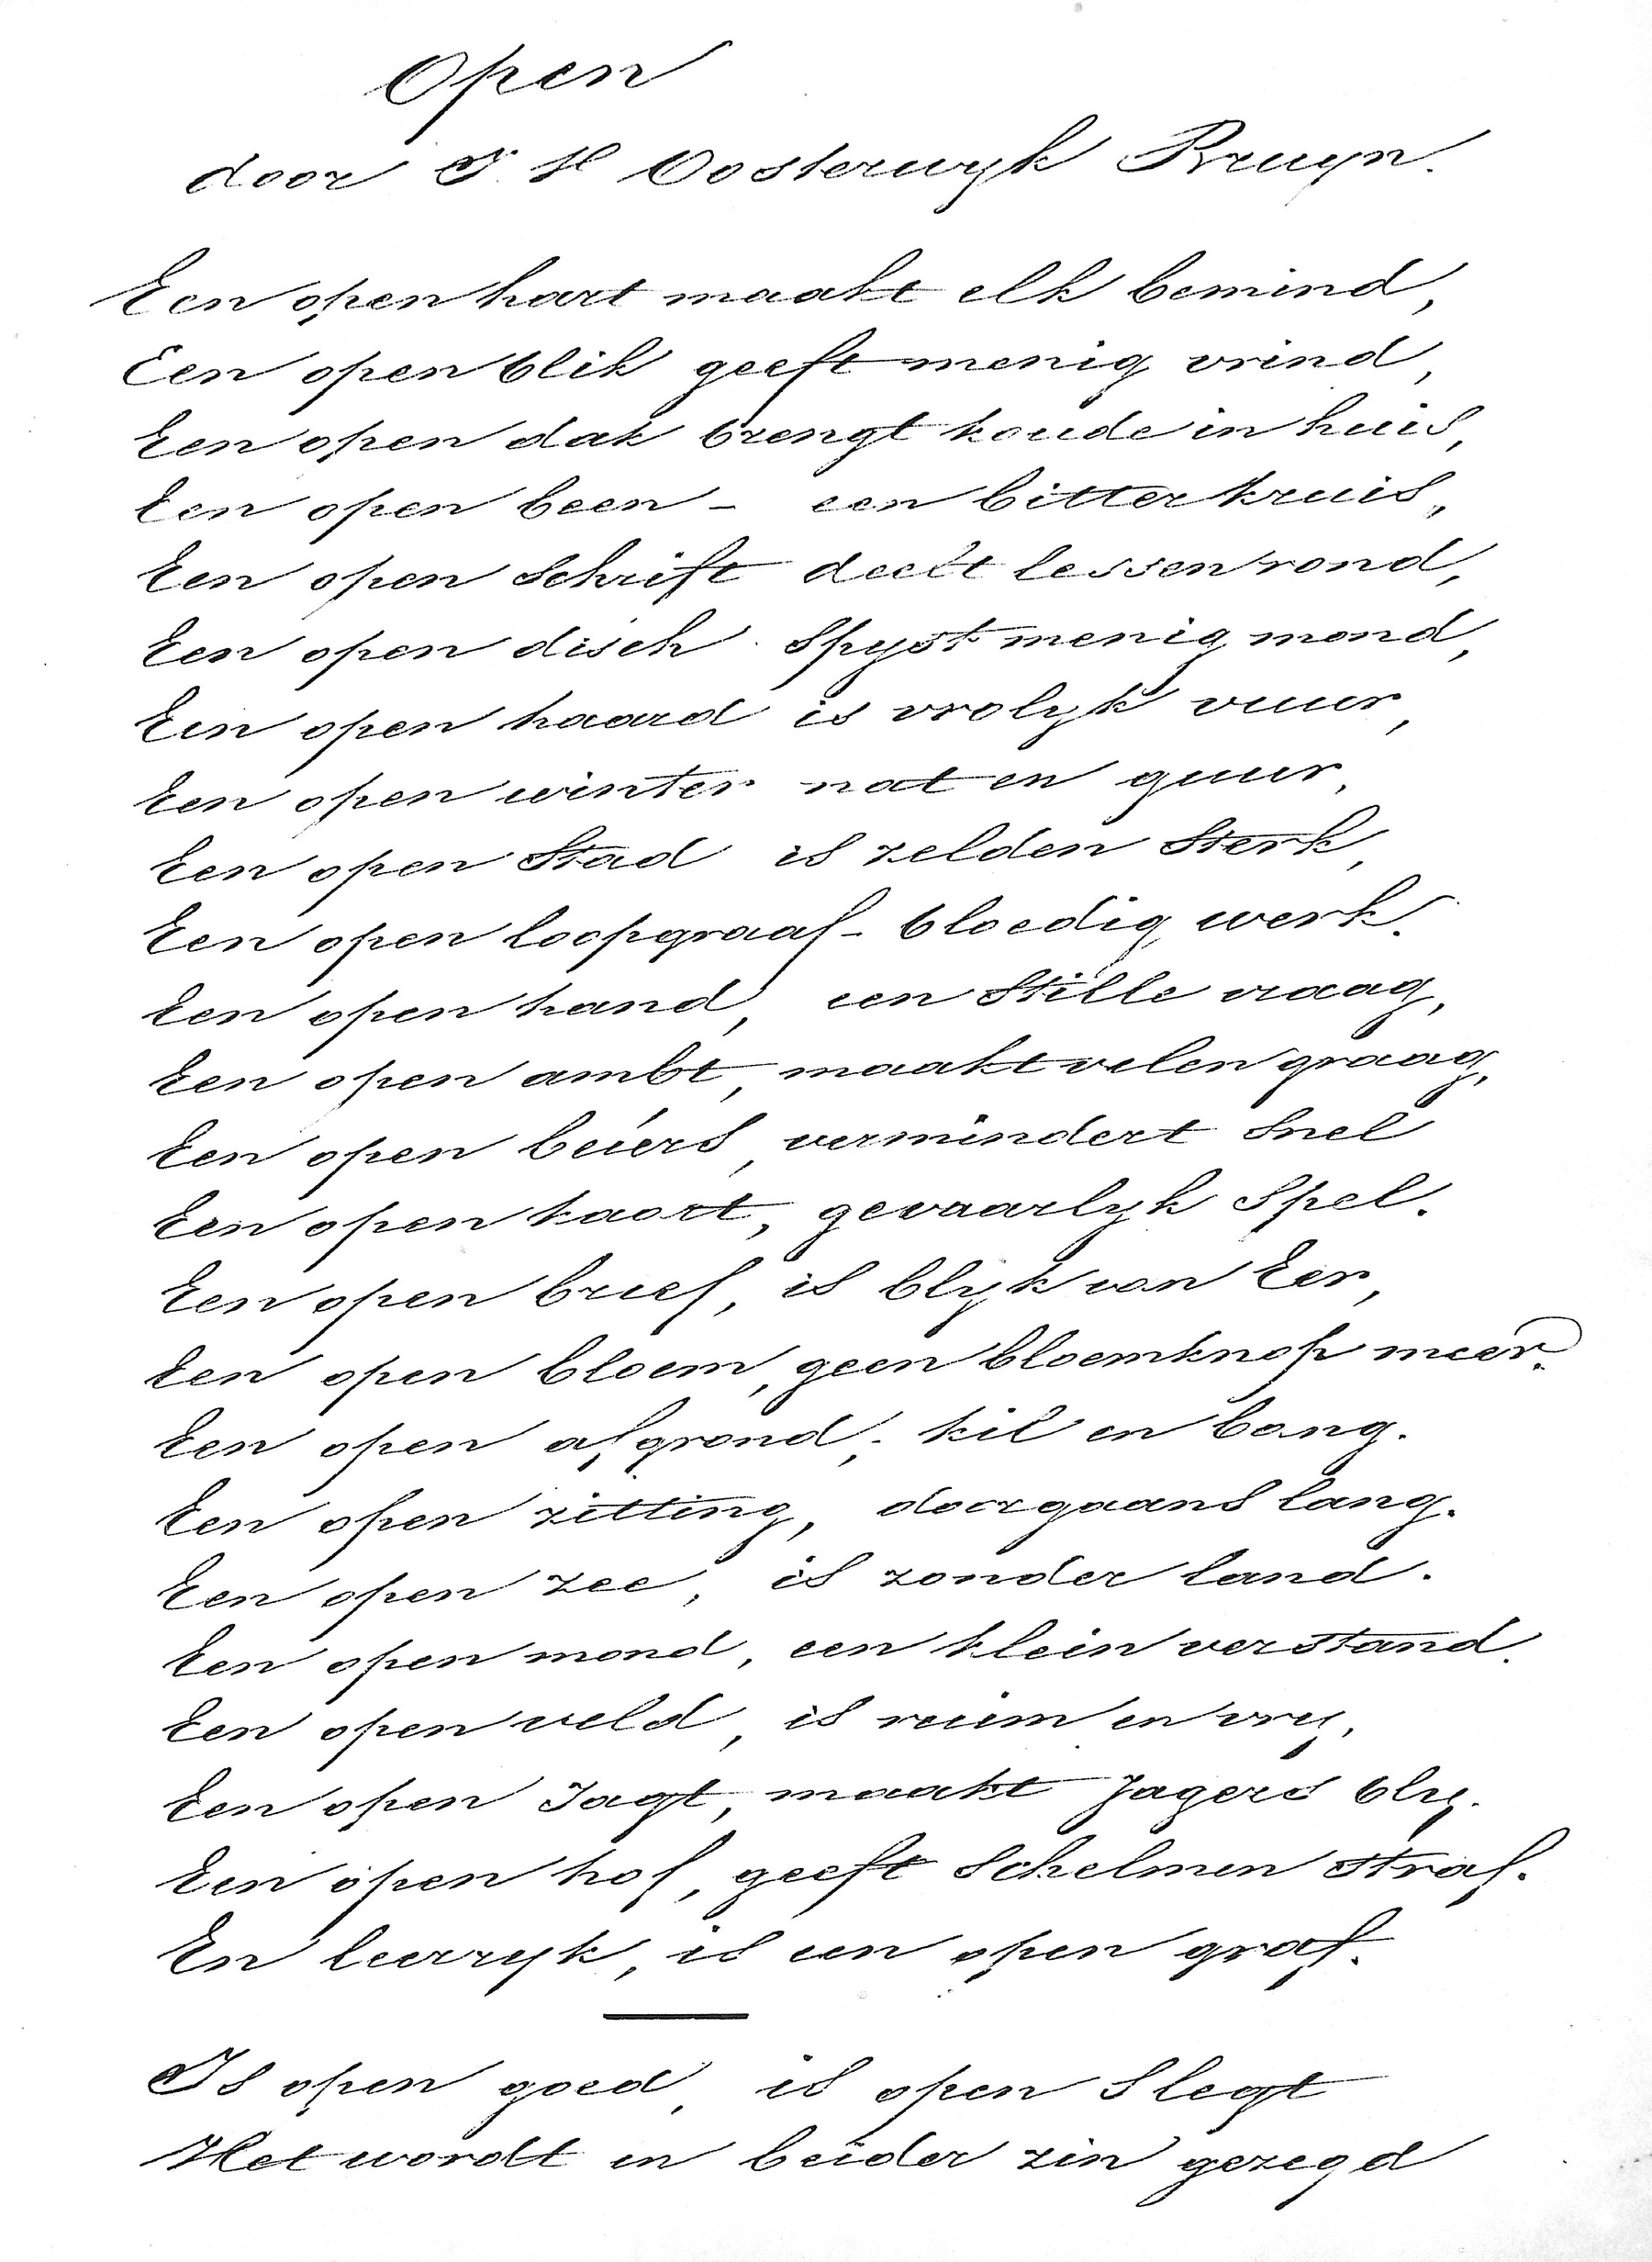 Open
door J. H Oosterwyk Bruyn.
Een open hart maakt elk bemind,
Een open blik geeft menig vrind,
Een open dak brengt koude in huis,
Een open been - een bitter kruis,
Een open Schrift deelt lessen rond,
Een open disch Spyst menig mond,
Een open haard is vrolyk vuur,
Een open winter nat en guur,
Een open Stad is zelden Sterk,
Een open loopgraaf - bloedig werk.
Een open hand, een Stille vraag,
Een open ambt, maakt velen graag,
Een open beurs, vermindert Snel
Een open kaart, gevaarlyk Spel.
Een open brief, is blyk van Eer,
Een open bloem, geen bloemknop meer.
Een open afgrond, kil en bang.
Een open zitting, doorgaans lang.
Een open zee, is zonder land.
Een open mond, een klein verstand.
Een open veld, is ruim en vry,
Een open Jagt, maakt Jagers bly.
Een open hof, geeft Schelmen Straf.
En leerryk, is een open graf.
Is open goed, is open Slegt
Het wordt in beider zin gezegd